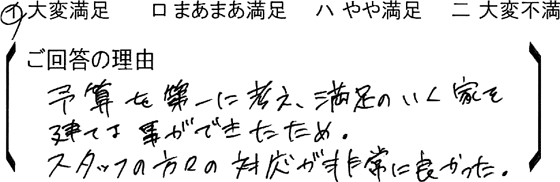 イ 大変満足 ロ まあまあ満足 ハ やや満足 ニ 大変不満
ご回答の理由
予算を第一に考え、満足のいく家を
建てる事ができたため。
スタッフの方々の対応が非常に良かった。